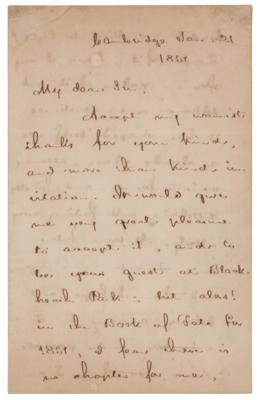 Cambridge Jan. 21
1851
My dear Sir,
Accept my warmest
thanks for your kind,
and more than kind in-
vitation. It would give
me very great pleasure
to accept it, and to
be your guest at Black
heath Park; but alas!
in the Book of Fate for
1851, I fear there is
no chapter for me,